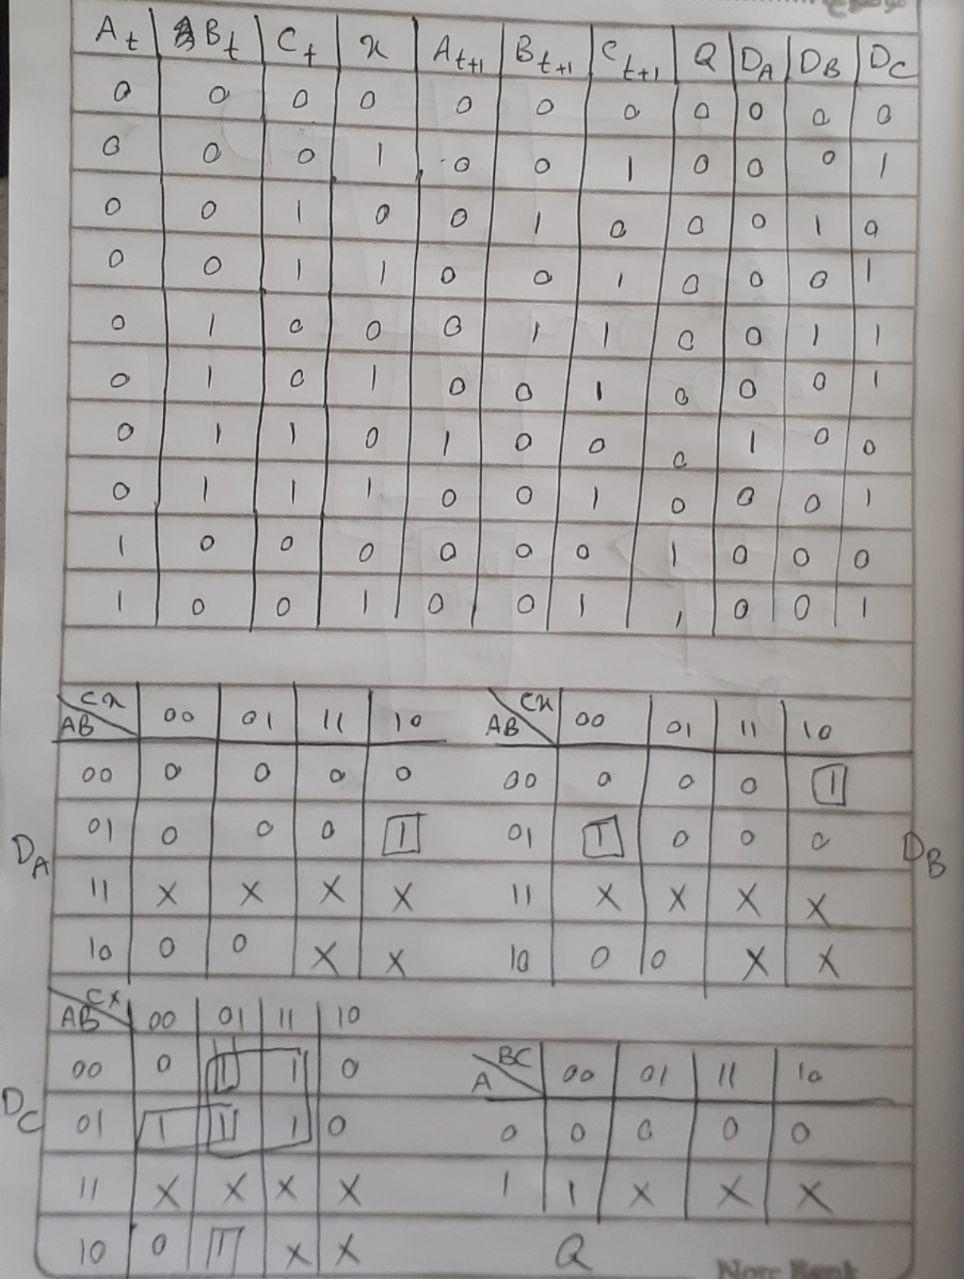 A t B t C t x A t+1 B t+1 C t+1 Q DA DB DC
0 0 0 0 0 0 0 0 0 0 0
0 0 0 1 0 0 1 0 0 0 1
0 0 1 0 0 1 0 0 0 1 0
0 0 1 1 0 0 1 0 0 0 1
0 1 0 0 0 1 1 0 0 1 1
0 1 0 1 0 0 1 0 0 0 1
0 1 1 0 1 0 0 0 1 0 0
0 1 1 1 0 0 1 0 0 0 1
1 0 0 0 0 0 0 1 0 0 0
1 0 0 1 0 0 1 1 0 0 1
Cx
AB 00 01 11 10
00 0 0 0 0
01 0 0 0 1
11 X X X X
10 0 0 X X
DA
Cx
AB 00 01 11 10
00 0 0 0 1
01 1 0 0 0
11 X X X X
10 0 0 X X
DB
Cx
AB 00 01 11 10
00 0 1 1 0
01 1 1 1 0
11 X X X X
10 0 1 X X
DC
BC
A 00 01 11 10
0 0 0 0 0
1 1 X X X
Q